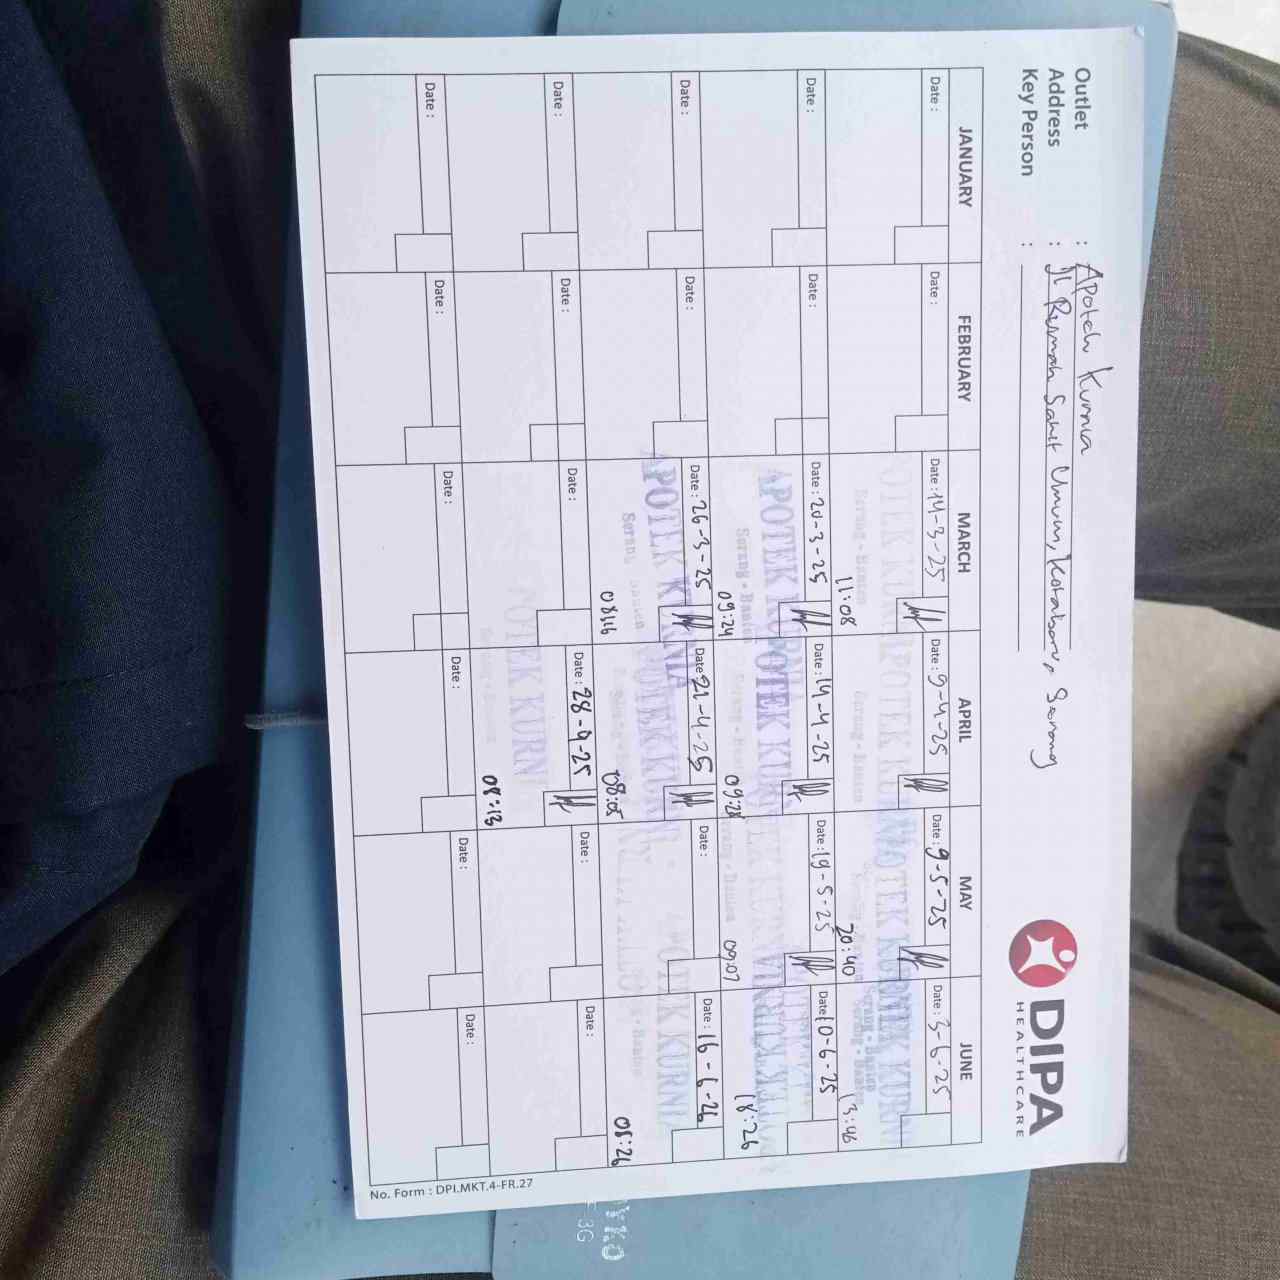 Outlet : Apotek Kurnia
Address : Jl Rumah Sakit Umum, Kotabaru, Serang
Key Person :
DIPA
HEALTHCARE
JANUARY FEBRUARY MARCH APRIL MAY JUNE
Date : Date : Date : 14-3-25 Date : 9-4-25 Date : 9-5-25 Date : 3-6-25
APOTEK KURNIA
Serang - Banten
11:08 20:40 13:46
Date : Date : Date : 20-3-25 Date : 14-4-25 Date : 19-5-25 Date : 10-6-25
APOTEK KURNIA
Serang - Banten
09:24 09:28 09:07 18:26
Date : Date : Date : 26-3-25 Date : 21-4-25 Date : Date : 16-6-26
APOTEK KURNIA
Serang - Banten
08:16 08:05 08:26
Date : Date : Date : Date : 28-4-25 Date : Date :
POTEK KURNI
08:13
Date : Date : Date : Date : Date : Date :
No. Form : DPI.MKT.4-FR.27
3G